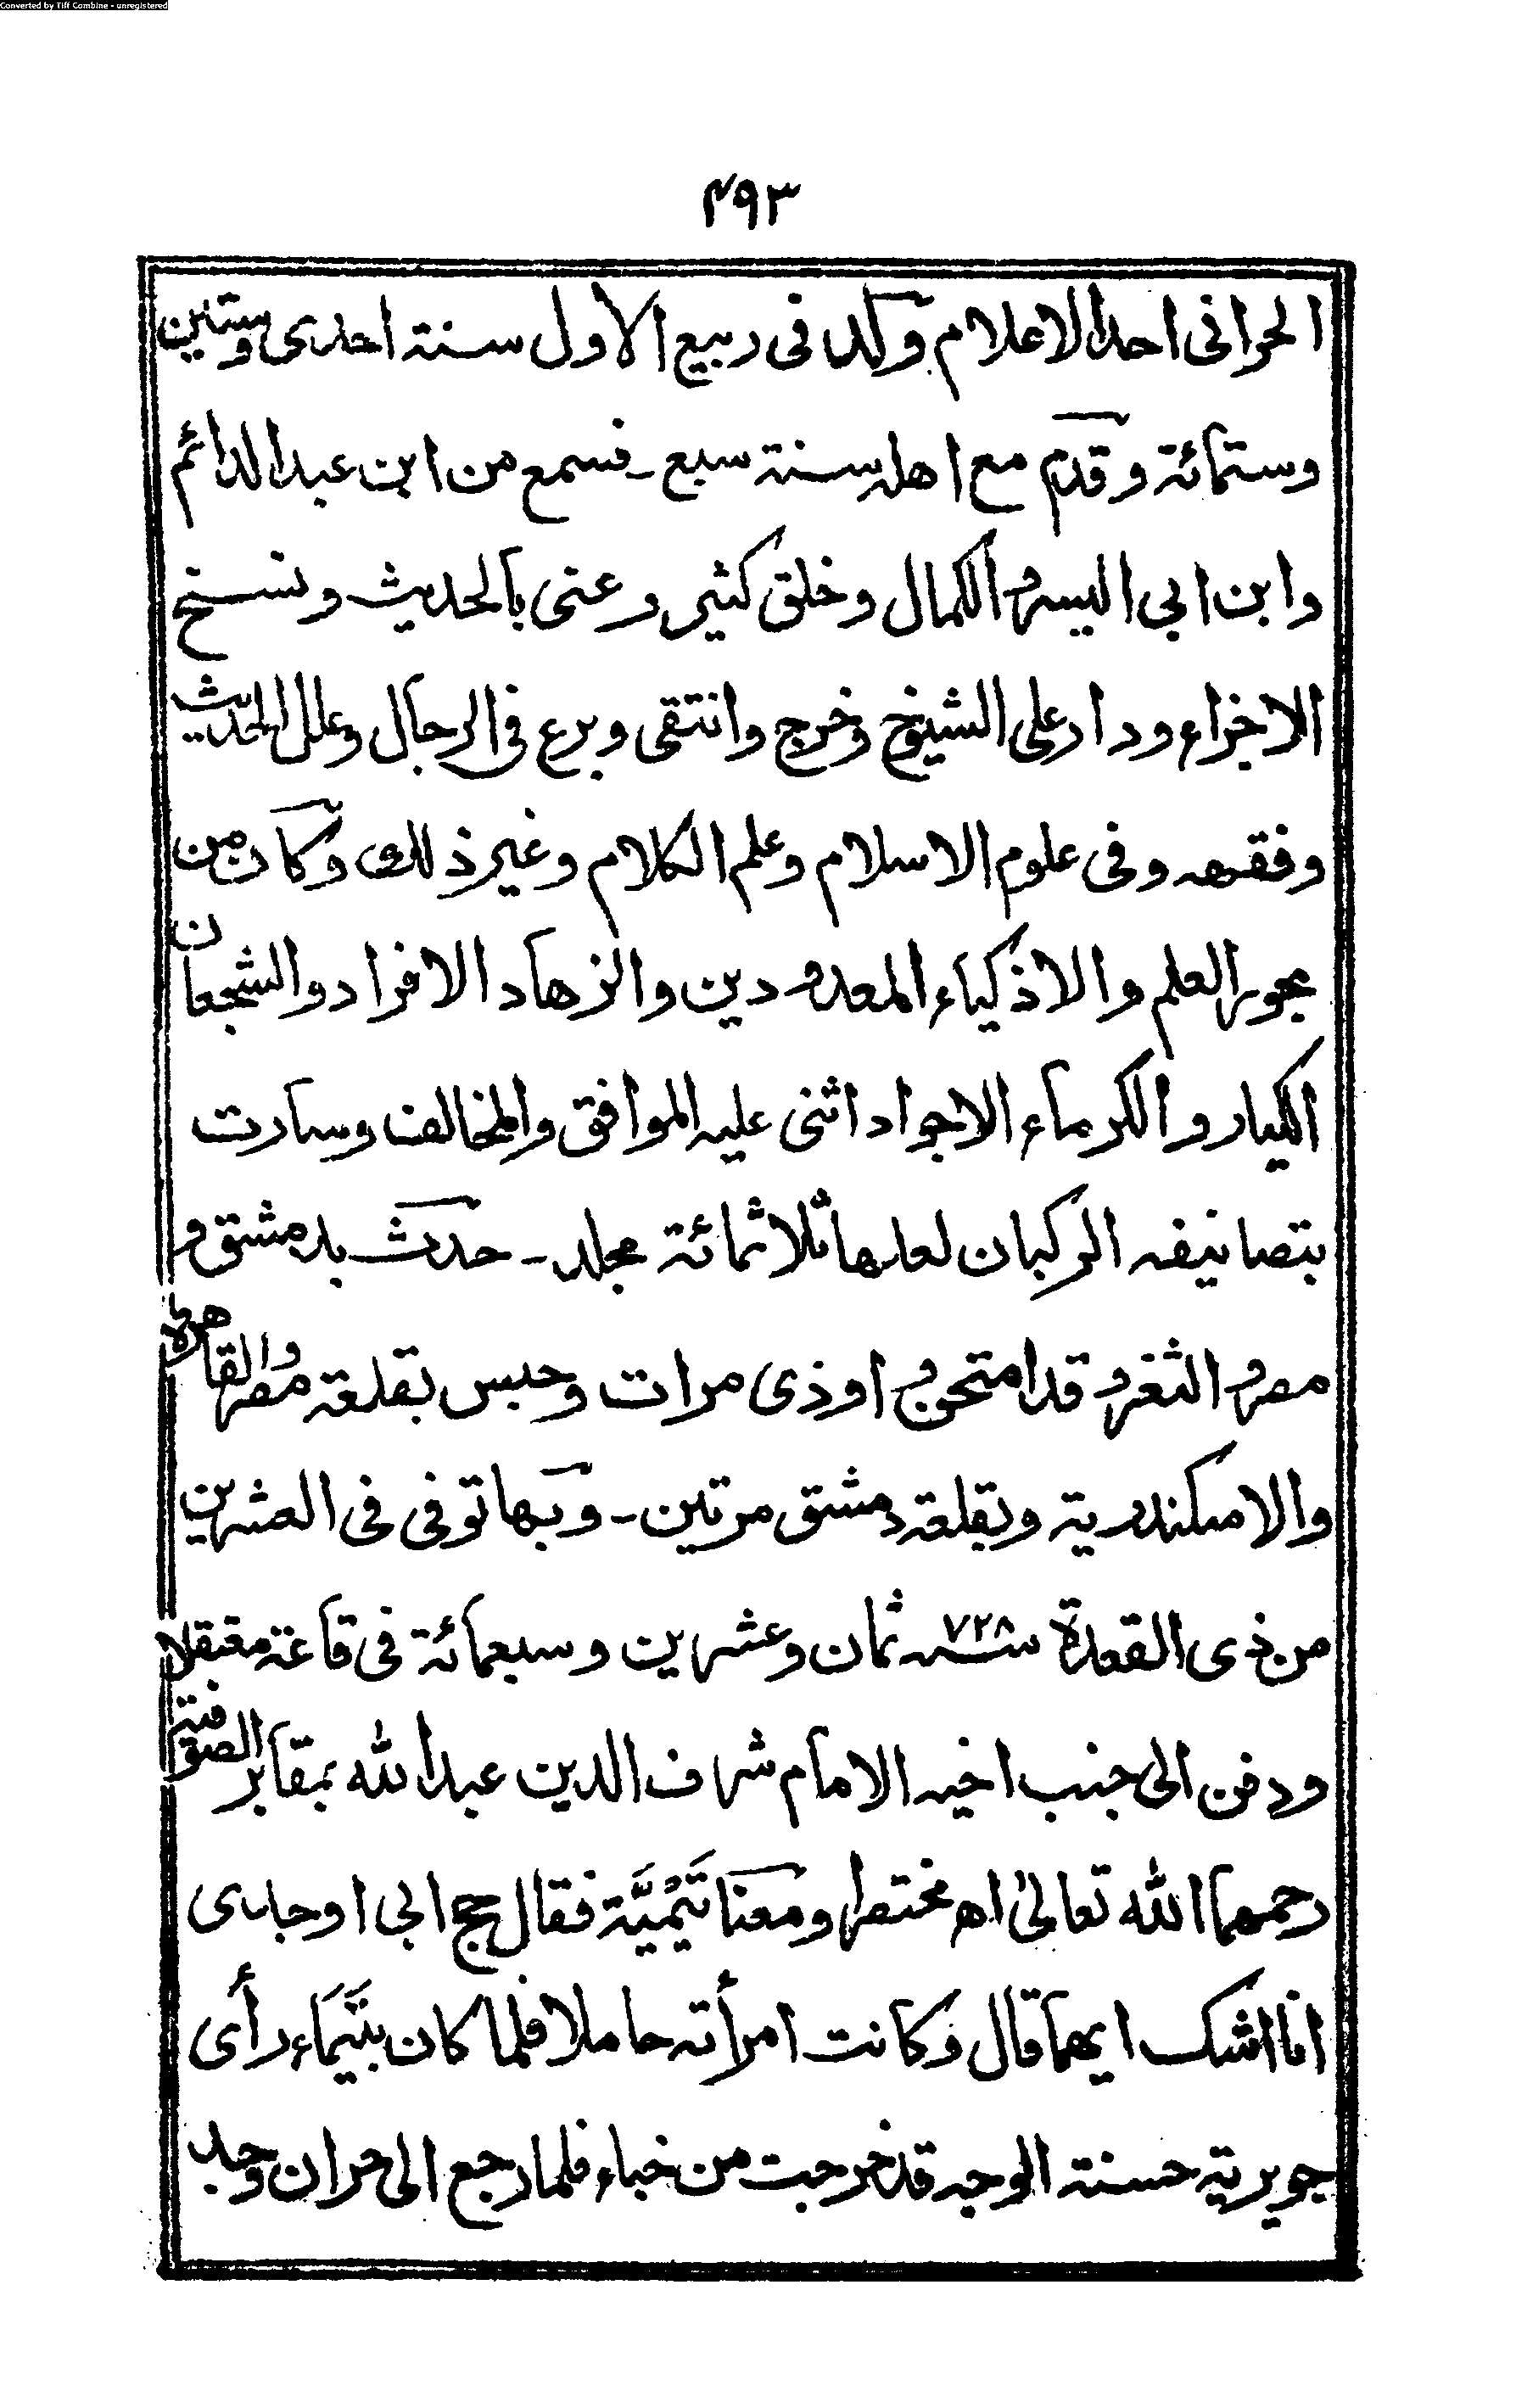 Converted by Tiff Combine - unregistered
۴۹۳
الحرانى احد الاعلام وُلد فى ربيع الاول سنة احدى وستين
وستمائة وقدم مع اهله سنة سبع ـ فسمع من ابن عبد الدائم
وابن ابى اليسر والكمال وخلق كثير وعنى بالحديث ونسخ
الاجزاء ودار على الشيوخ وخرج وانتقى وبرع فى الرجال وعلل الحديث
وفقهه وفى علوم الاسلام وعلم الكلام وغير ذلك وكان من
بحور العلم والاذكياء المعدودين والزهاد الافراد والشجعان
الكبار والكرماء الاجواد اثنى عليه الموافق والمخالف وسارت
بتصانيفه الركبان لعلها ثلاثمائة مجلد ـ حدث بدمشق و
مصر والثغر وقد امتحن واوذى مرات وحبس بقلعة مصر والقاهرة
والاسكندرية وبقلعة دمشق مرتين ـ وبها توفى فى العشرين
من ذى القعدة سنه ۷۲۸ ثمان وعشرين وسبعمائة فى قاعة معتقلا
ودفن الى جنب اخيه الامام شرف الدين عبد الله بمقابر الصوفية
رحمهما الله تعالىٰ اھ مختصرا ومعنا تَيْمِيَّة فقال حج ابى اوجدى
انا اشك ايهما قال وكانت امرأته حاملا فلما كان بتَيْمَاء رأى
جويرية حسنة الوجه قد خرجت من خباء فلما رجع الى حران وجد